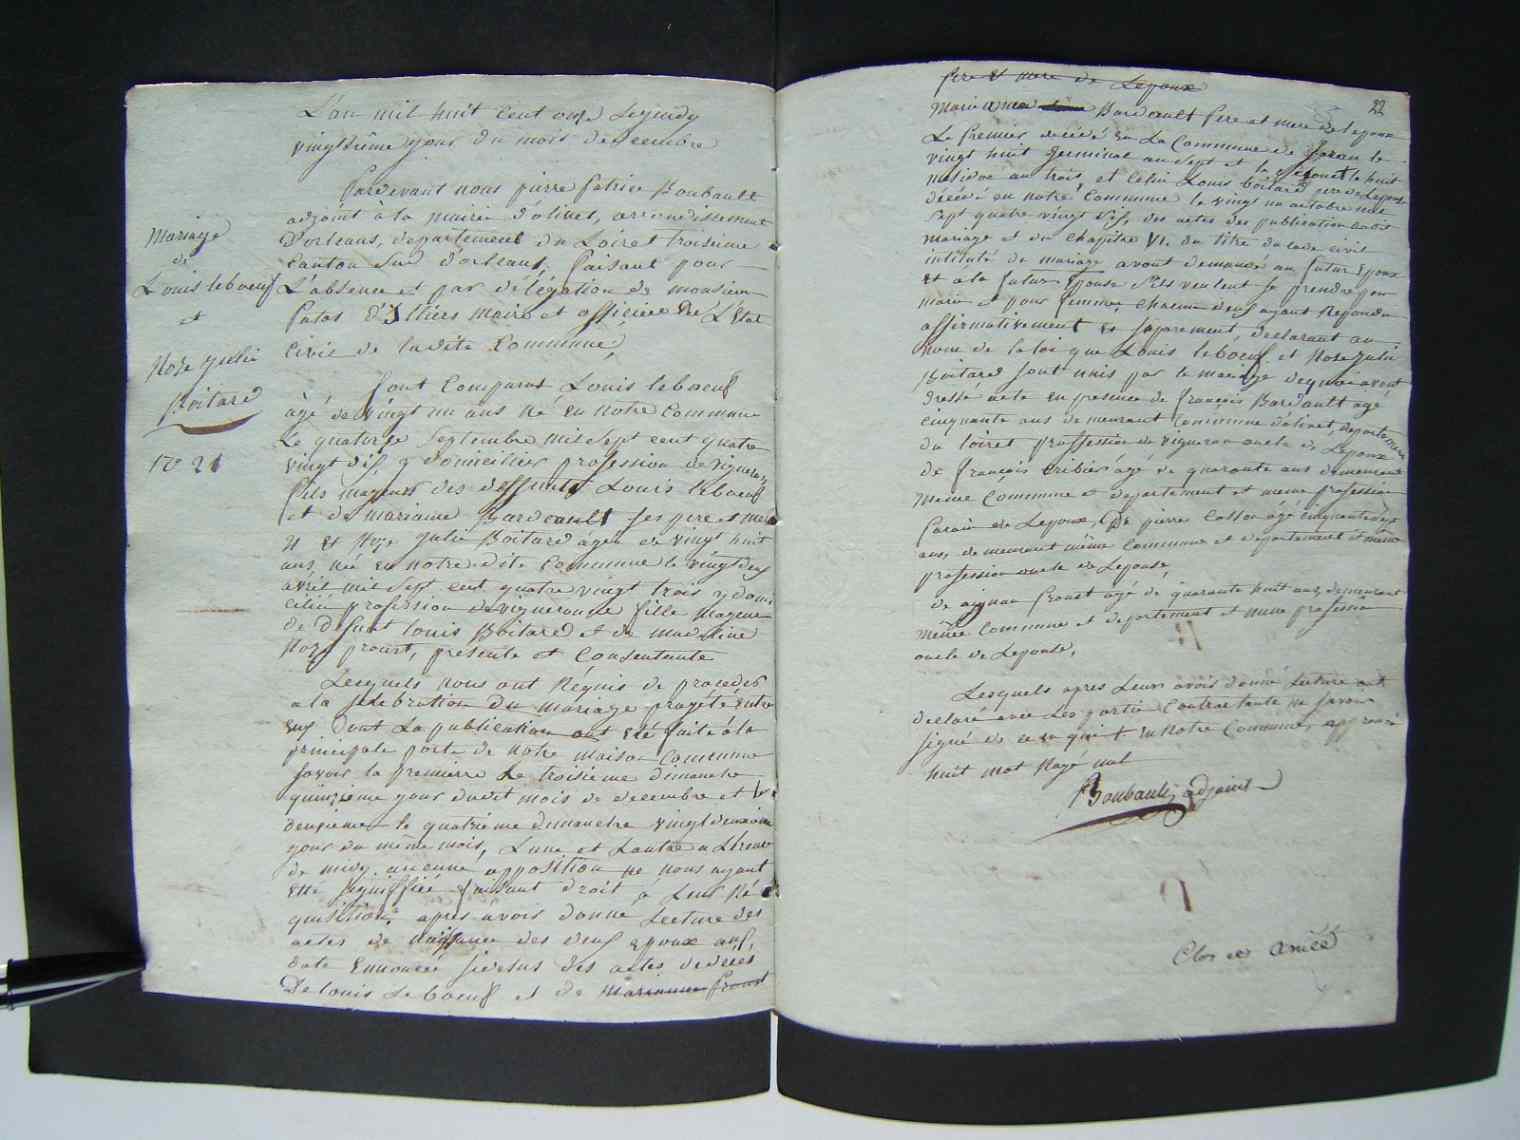 L'an mil huit cent onze le jeudy
vingtsixme jour du mois decembre
Pardevant nous pierre patrice Boubault
adjoint à la mairie d'olivet, arrondissement
D'orleans, departement du Loiret troisieme
Canton Sud d'orleans, faisant pour
L'absence et par delégation de monsieur
Patas d'Illiers maire et officier de L'Etat
Civil de ladite Commune,
Mariage
de
Louis leboeuf
et
Rose julie
Boitard
N° 21
Sont Comparus Louis leboeuf
âgé de vingt un ans né en notre Commune
Le quatorze Septembre mil sept cent quatre
vingt dix y domicilier profession de vigneron
fils majeur des deffunts Louis leboeuf
et de mariaine Bardeault ses pere et mere
Et Roze julie Boitard agée de vingt huit
ans, née en notre dite Commune le vingt deux
avril mil sept cent quatre vingt trois y domi
ciliée profession de vigneronne fille majeure
de Defunt louis Boitard et de madelaine
Roze proust, presente et Consentente
Lesquels nous ont Réquis de proceder
a la Célébration du mariage projeté entre
eux dont La publication ont été faite à la
principale porte de notre maison Commune
savoir la premiere Le troisième dimanche
quinzieme jour dudit mois de decembre et la
deuxieme le quatrieme dimanche vingt deuxieme
jour du même mois, L'une et Lautre a L'heure
de midy. aucune opposition ne nous ayant
été signiffiée faisant droit a Leur Ré
quisition, apres avoir donne Lecture des
actes de naissance des deux Epoux aux
date Enoncée sidesus des actes de décès
De louis Leboeuf et de marianne proust
pere et mere de Lepoux
22
Marianne Bardeault pere et mere de lepoux
Le premier decédé en La Commune de le
vingt huit germinal an sept et la seconde le huit
an trois, et Celui Louis boitard pere de Lepouse
décédé en notre Commune le vingt un octobre mil
sept quatre vingt dix, des actes des publication de
mariage et du chapitre VI. du titre du code civil
intitulé du mariage avont demandé au futur Epoux
et à la future Epouse s'ils veulent se prendre pour
mari et pour femme, chacun deux ayant Repondu
affirmativement et séparement, declarant au
nom de la loi que Louis leboeuf et Rose Julie
Boitard sont unis par le mariage dequoi avont
dressé acte en presence de françois Bardault agé
cinquante ans demeurant Commune d'olivet, departement
du loiret profession de vigneron oncle de Lepoux
de françois âgé de quarante ans demeurant
meme Commune et departement et meme profession
Parain de Lepoux, De pierre Casson agé cinquante six
ans, demeurant même Commune et departement et meme
profession oncle de Lepouse,
de aignan proust agé de quarante huit ans demeurant
même Commune et departement et meme profession
oncle de Lepouse,
Lesquels apres Leurs avoir donné Lecture ont
declaré avec Les partie Contractante ne savoir
signé de ce en quit en notre Commune, approuvé
huit mot Rayé nul
Boubault adjoint
Clos et Arrêté